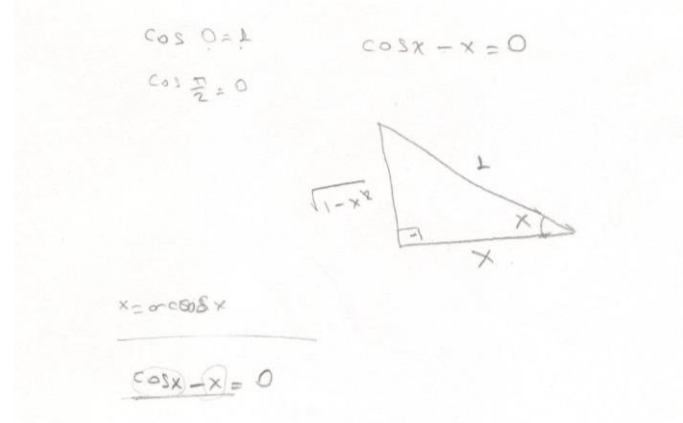 cos 0 = 1
cos π/2 = 0
cosx - x = 0
1
√1-x²
x
x
x = arccos x
cosx - x = 0